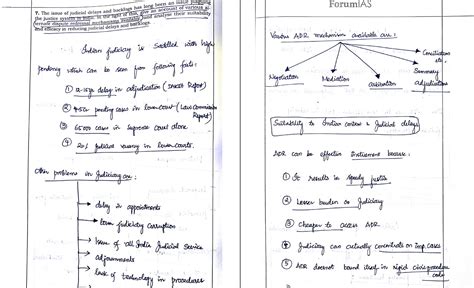 7. The issue of judicial delays and backlogs has long been an issue plaguing
the justice system in India. In the light of this, give an account of various al-
ternate dispute redressal mechanisms available and analyse their suitability
and efficacy in reducing judicial delays and backlogs.
Indian Judiciary is Saddled with high
pendency which can be seen from following facts:
① delay in adjudication (Report)
② pending cases in lower court (Law Commission
Report)
③ 65000 cases in Supreme court alone
④ 20% judicial vacancy in lower courts.
Other problems in Judiciary are:
→ delay in appointments
→ term judiciary corruption
→ Issue of all India Judicial Service
→ adjournments
→ lack of technology in procedures
ForumIAS
Various ADR mechanism available are:
Conciliation
etc.
Negotiation
Mediation
arbitration
Summary
adjudication
Suitability to Indian context & Judicial delays
ADR can be effective Instrument because:
① It results in speedy justice
② Lesser burden on Judiciary
③ Cheaper to access ADR.
④ Judiciary can actually concentrate on imp. cases
⑤ ADR doesnot bound itself in rigid civil procedure
code